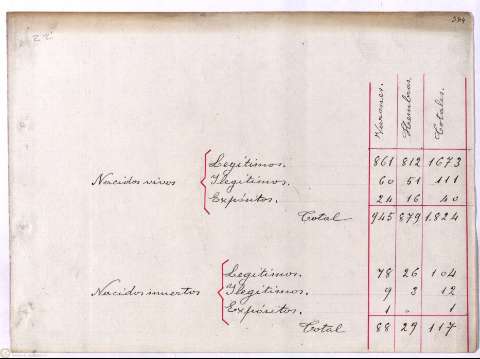 Varones. Hembras. Totales.
Legítimos. 861 812 1673
Nacidos vivos Ilegítimos. 60 51 111
Expósitos. 24 16 40
Total 945 879 1.824
Legítimos. 78 26 104
Nacidos muertos Ilegítimos. 9 3 12
Expósitos. 1 " 1
Total 88 29 117